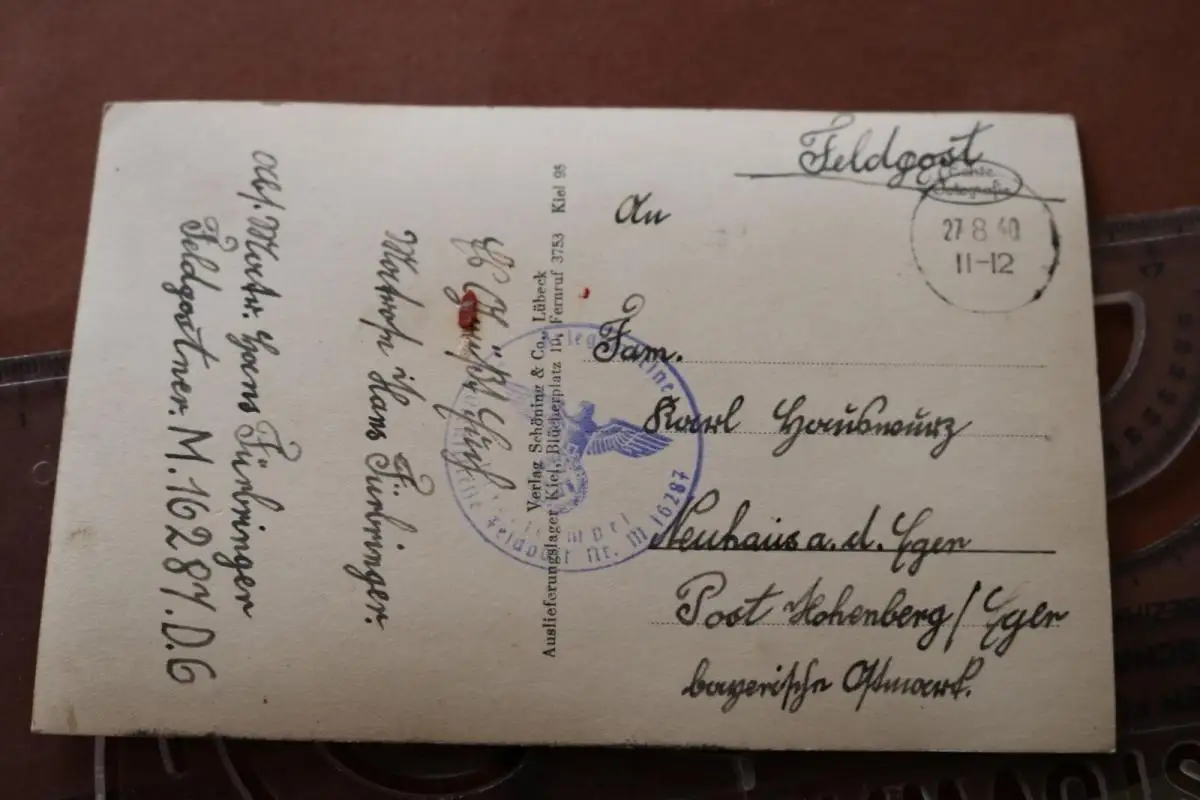 Feldpost
Echte
Fotografie
27 8 40
11-12
An
Fam.
Karl Hauswurz
Neuhaus a. d. Eger
Post Hohenberg/Eger
bayerische Ostmark.
Verlag Schöning & Co., Lübeck
Auslieferungslager Kiel, Blücherplatz 10, Fernruf 3753 Kiel 98
Feldpost Nr. M 16287
Hans Fürbringer.
Abs. Matr. Hans Fürbringer
Feldpostner. M.16287.D.6